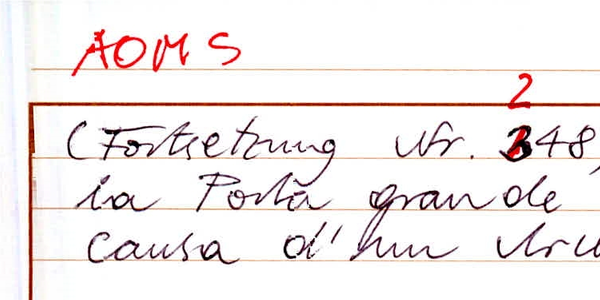 AOMS
2
(Fortsetzung Nr. 348,
la Porta grande
causa d'un